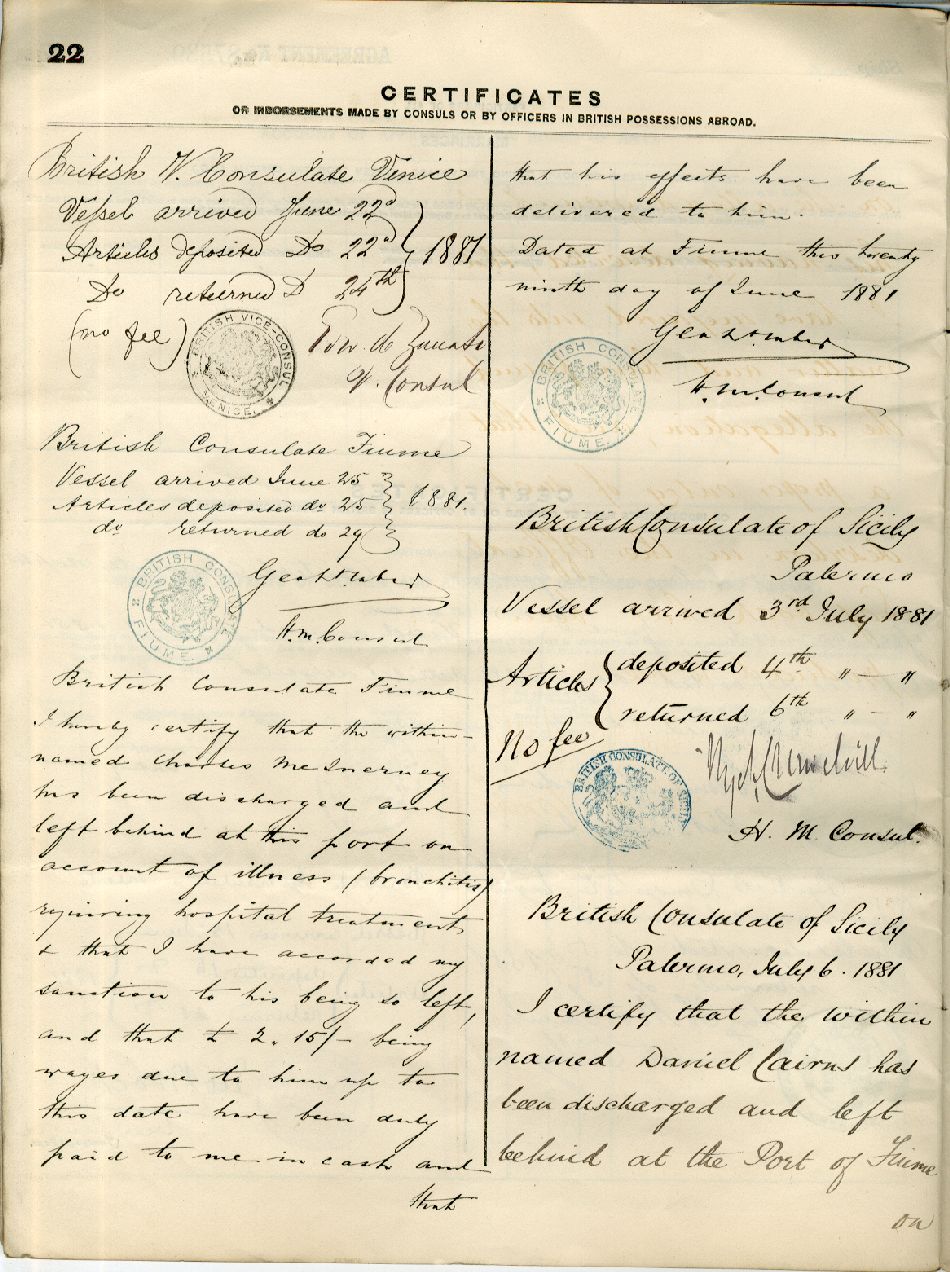 22
CERTIFICATES
OR INDORSEMENTS MADE BY CONSULS OR BY OFFICERS IN BRITISH POSSESSIONS ABROAD.
British V. Consulate Venice
Vessel arrived June 22d
Articles deposited Do 22d } 1881
Do returned D 24th
(no fee)
BRITISH VICE-CONSUL
VENICE.
V. Consul
British Consulate Fiume
Vessel arrived June 25
Articles deposited do 25 } 1881.
do returned do 29
BRITISH CONSULATE
FIUME.
H.M. Consul
British Consulate Fiume
I hereby certify that the within-
named Charles McInerney
has been discharged and
left behind at this port on
account of illness (bronchitis)
requiring hospital treatment
& that I have accorded my
sanction to his being so left,
and that £ 2.15/- being
wages due to him up to
this date have been duly
paid to me in cash and
that
that his effects have been
delivered to him.
Dated at Fiume this twenty
ninth day of June 1881
BRITISH CONSULATE
FIUME.
H.M. Consul
British Consulate of Sicily
Palermo
Vessel arrived 3rd July 1881
Articles { deposited 4th " - "
returned 6th " - "
No fee
BRITISH CONSULATE OF SICILY
H. M Consul.
British Consulate of Sicily
Palermo, July 6. 1881
I certify that the within
named Daniel Cairns has
been discharged and left
behind at the Port of Fiume
on